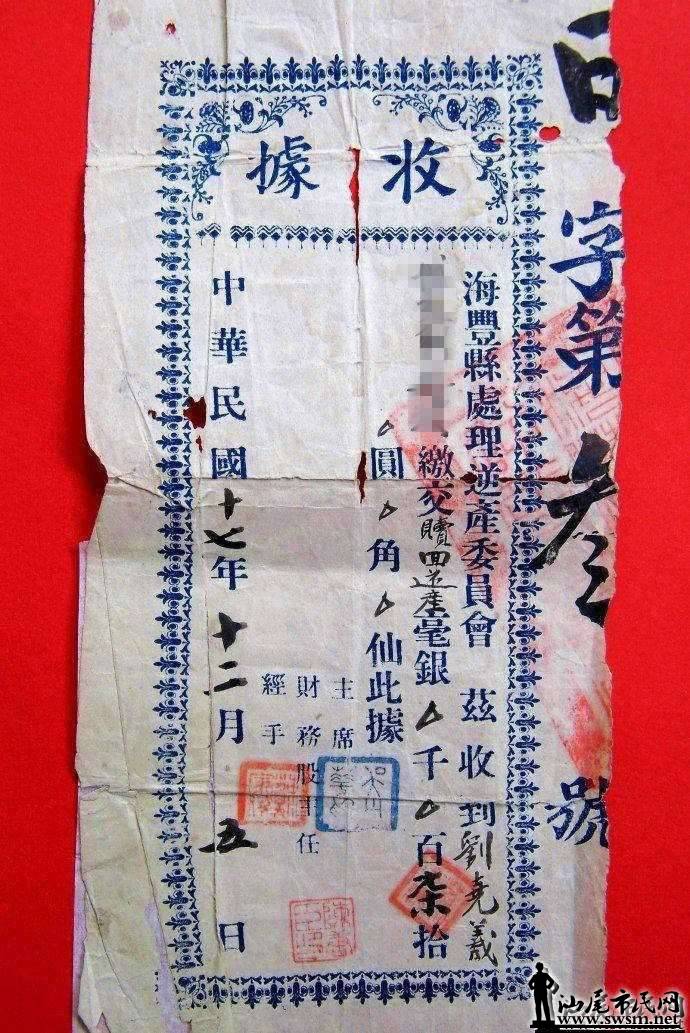 收據
字第叁號
海豐縣處理逆產委員會 茲收到劉堯義
繳交贖回逆產毫銀△千△百柒拾
△圓△角△仙此據
主席
財務股主任
經手
中華民國十七年十二月五日
汕尾市民网
www.swsm.net